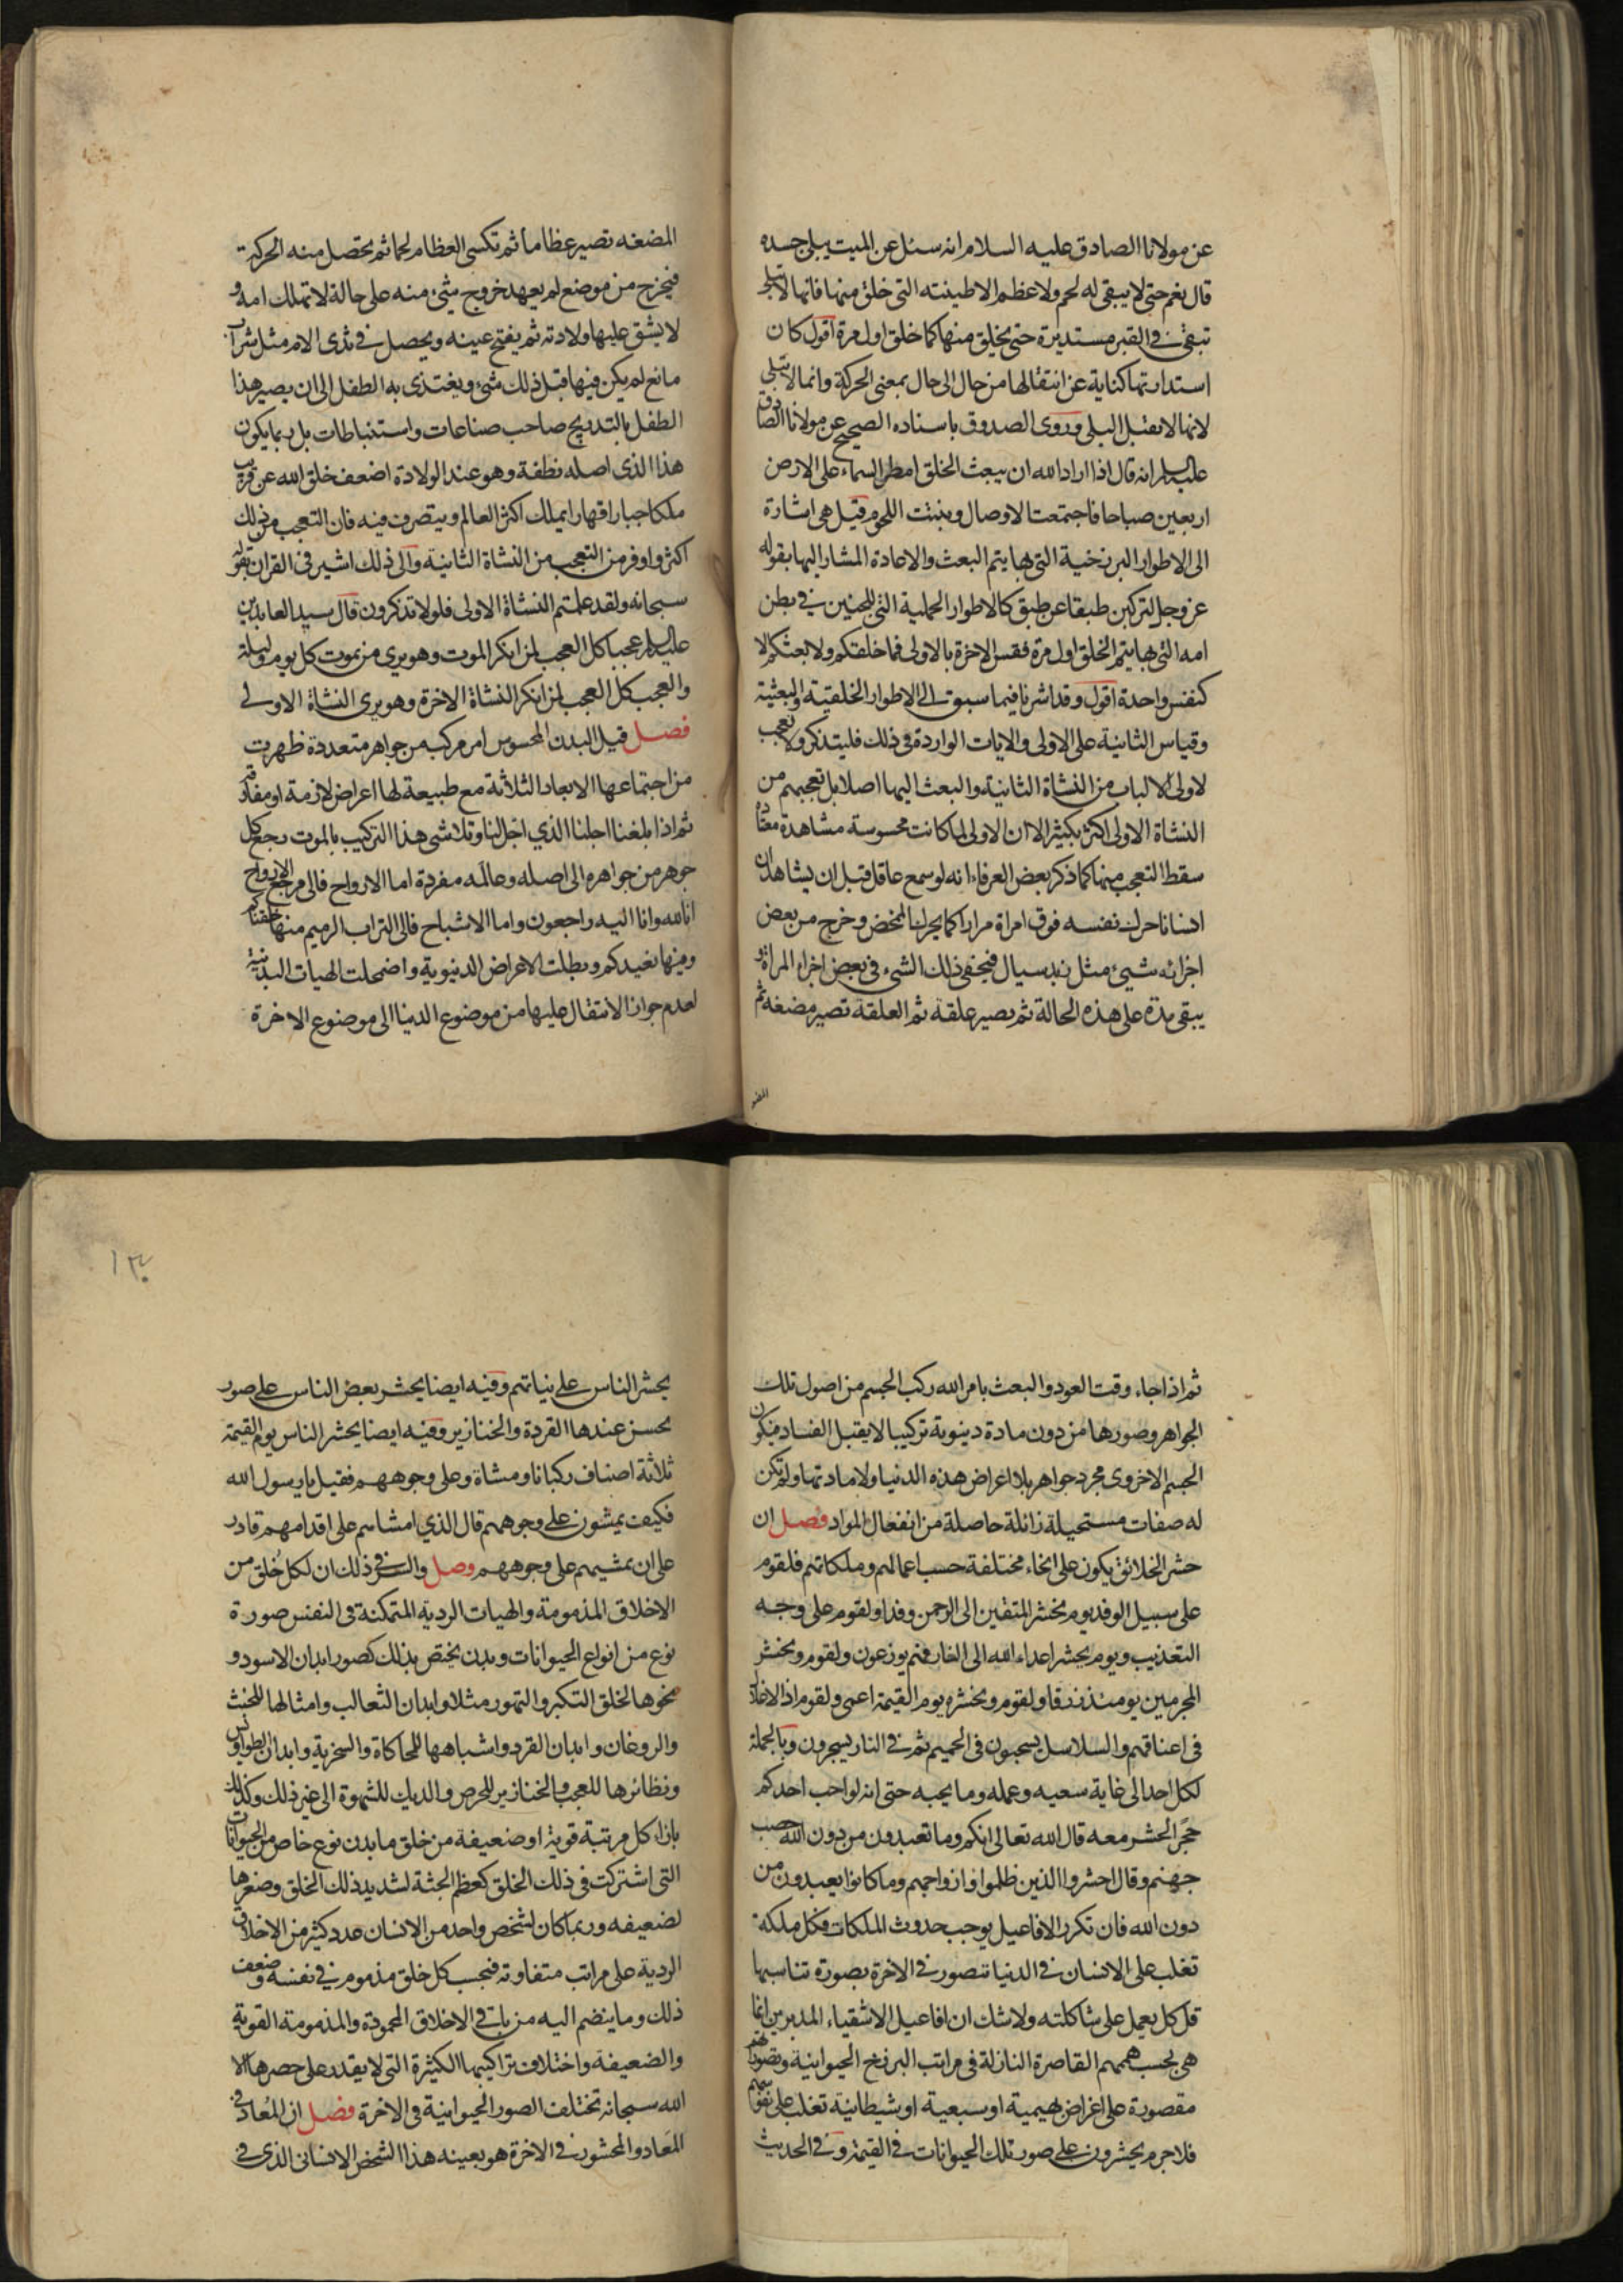 عن مولانا الصادق عليه السلام انه سئل عن الميت يبلى جسده
قال نعم حتى لا يبقى له لحم ولا عظم الا طينته التى خلق منها فانها لا تبلى
تبقى فى القبر مستديرة حتى يخلق منها كما خلق اول مرة اقول كان
استدارتها كناية عن انتقالها من حال الى حال بمعنى الحركة وانما لا تبلى
لانها لا تقبل البلى وروى الصدوق باسناده الصحيح عن مولانا الصادق
عليه السلم انه قال اذا اراد الله ان يبعث الخلق امطر السماء على الارض
اربعين صباحا فاجتمعت الاوصال ونبتت اللحوم قيل هى اشارة
الى الاطوار البرزخية التى بها يتم البعث والاعادة المشار اليها بقوله
عز وجل لتركبن طبقا عن طبق كالاطوار الحملية التى للجنين فى بطن
امه التى بها يتم الخلق اول مرة فقس الاخرة بالاولى فما خلقكم ولا بعثكم الا
كنفس واحدة اقول وقد اشرنا فيما سبق الى الاطوار الخلقية والبعثية
وقياس الثانية على الاولى والايات الواردة فى ذلك فليتذكر ولا تعجب
لاولى الالباب من النشاة الثانية والبعث اليها اصلا بل تعجبهم من
النشاة الاولى اكثر بكثير الا ان الاولى لما كانت محسوسة مشاهدة معتادة
سقط التعجب منها كما ذكر بعض العرفاء انه لو سمع عاقل قبل ان يشاهد ان
انسانا حرك نفسه فوق امراة مرارا كما يحرك المخض وخرج من بعض
اجزائه شىء مثل زبد سيال فيخفى ذلك الشىء فى بعض اجزاء المراة و
يبقى مدة على هذه الحالة ثم تصير علقة ثم العلقة تصير مضغه ثم
المضغه
المضغه تصير عظاما ثم تكسى العظام لحما ثم يحصل منه الحركة
فيخرج من موضع لم يعهد خروج شىء منه على حالة لا تهلك امه و
لا يشق عليها ولادته ثم يفتح عينه ويحصل فى ثدى الام مثل شراب
مائع لم يكن فيها قبل ذلك شىء ويغتذى به الطفل الى ان يصير هذا
الطفل بالتدريج صاحب صناعات واستنباطات بل ربما يكون
هذا الذى اصله نطفة وهو عند الولادة اضعف خلق الله عن قريب
ملكا جبارا قهارا يملك اكثر العالم ويتصرف فيه فان التعجب من ذلك
اكثر واوفر من التعجب من النشاة الثانية والى ذلك اشير فى القران بقوله
سبحانه ولقد علمتم النشاة الاولى فلولا تذكرون قال سيد العابدين
عليه السلم عجبا كل العجب لمن انكر الموت وهو يرى من يموت كل يوم وليلة
والعجب كل العجب لمن انكر النشاة الاخرة وهو يرى النشاة الاولى
فصل قيل البدن المحسوس امر مركب من جواهر متعددة ظهرت
من اجتماعها الابعاد الثلاثة مع طبيعة لها اعراض لازمة او مفارقة
ثم اذا بلغنا اجلنا الذى اجل لنا وتلاشى هذا التركيب بالموت رجع كل
جوهر من جواهره الى اصله وعالمه مفردة اما الارواح فالى مرجع الارواح
انا لله وانا اليه راجعون واما الاشباح فالى التراب الرميم منها خلقناكم
وفيها نعيدكم وبطلت الاعراض الدنيوية واضمحلت الهيات البدنية
لعدم جواز الانتقال عليها من موضوع الدنيا الى موضوع الاخرة
ثم اذا جاء وقت العود والبعث بامر الله ركب الجسم من اصول تلك
الجواهر وصورها من دون مادة دينوية تركيبا لا يقبل الفساد فيكون
الجسم الاخروى مجرد جواهر بلا اعراض هذه الدنيا ولا مادتها ولم تكن
له صفات مستحيلة زائلة حاصلة من انفعال المواد فصل ان
حشر الخلائق يكون على انحاء مختلفة حسب اعمالهم وملكاتهم فلقوم
على سبيل الوفد يوم نحشر المتقين الى الرحمن وفدا ولقوم على وجه
التعذيب ويوم يحشر اعداء الله الى النار فهم يوزعون ولقوم ونحشر
المجرمين يومئذ زرقا ولقوم ونحشره يوم القيمة اعمى ولقوم اذ الاغلال
فى اعناقهم والسلاسل يسحبون فى الحميم ثم فى النار يسجرون وبالجملة
لكل احد الى غاية سعيه وعمله وما يحبه حتى انه لو احب احدكم
حجر الحشر معه قال الله تعالى انكم وما تعبدون من دون الله حصب
جهنم وقال احشروا الذين ظلموا وازواجهم وما كانوا يعبدون من
دون الله فان تكرر الافاعيل يوجب حدوث الملكات فكل ملكة
تغلب على الانسان فى الدنيا تتصور فى الاخرة بصورة تناسبها
قل كل يعمل على شاكلته ولا شك ان افاعيل الاشقياء المدبرين انما
هى بحسب هممهم القاصرة النازلة فى مراتب البرزخ الحيوانية وتصوراتهم
مقصورة على اغراض بهيمية او سبعية او شيطانية تغلب على نفوسهم
فلا جرم يحشرون على صور تلك الحيوانات فى القيمة وفى الحديث
١٣٠
يحشر الناس على نياتهم وفيه ايضا يحشر بعض الناس على صور
يحسن عندها القردة والخنازير وفيه ايضا يحشر الناس يوم القيمة
ثلاثة اصناف ركبانا ومشاة وعلى وجوههم فقيل يا رسول الله
فكيف يمشون على وجوههم قال الذى امشاهم على اقدامهم قادر
على ان يمشيهم على وجوههم وصل والسر فى ذلك ان لكل خلق من
الاخلاق المذمومة والهيات الردية المتمكنة فى النفس صورة
نوع من انواع الحيوانات وبدن يختص بذلك كصور ابدان الاسود و
نحوها لخلق التكبر والتهور مثلا وابدان الثعالب وامثالها للخبث
والروغان وابدان القرد واشباهها للمحاكاة والسخرية وابدان الطواويس
ونظائرها للعجب والخنازير للحرص والديك للشهوة الى غير ذلك وكذلك
بازاء كل مرتبة قوية او ضعيفة من خلق ما بدن نوع خاص من الحيوانات
التى اشتركت فى ذلك الخلق كعظم الجثة لشديد ذلك الخلق وصغرها
لضعيفه وربما كان لشخص واحد من الانسان عدد كثير من الاخلاق
الردية على مراتب متفاوته فبحسب كل خلق مذموم فى نفسه وضعف
ذلك وما ينضم اليه من باقى الاخلاق المحمودة والمذمومة القوية
والضعيفة واختلاف تراكيبها الكثيرة التى لا يقدر على حصرها الا
الله سبحانه تختلف الصور الحيوانية فى الاخرة فصل ان المعاد فى
المعاد والمحشور فى الاخرة هو بعينه هذا الشخص الانسانى الذى فى